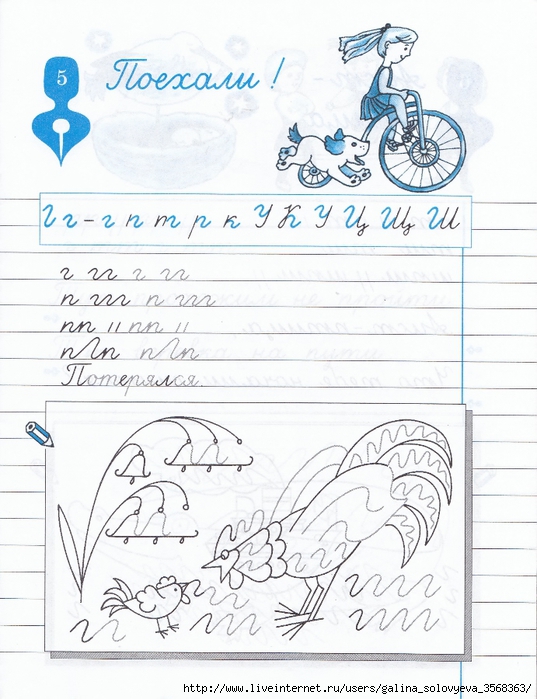 5
Поехали!
Гг-г п т р к У К У Ц Щ Ш
г гг г гг
п ггг п ггг
пп ıı пп ıı
пГп пГп
Потерялся.
http://www.liveinternet.ru/users/galina_solovyeva_3568363/